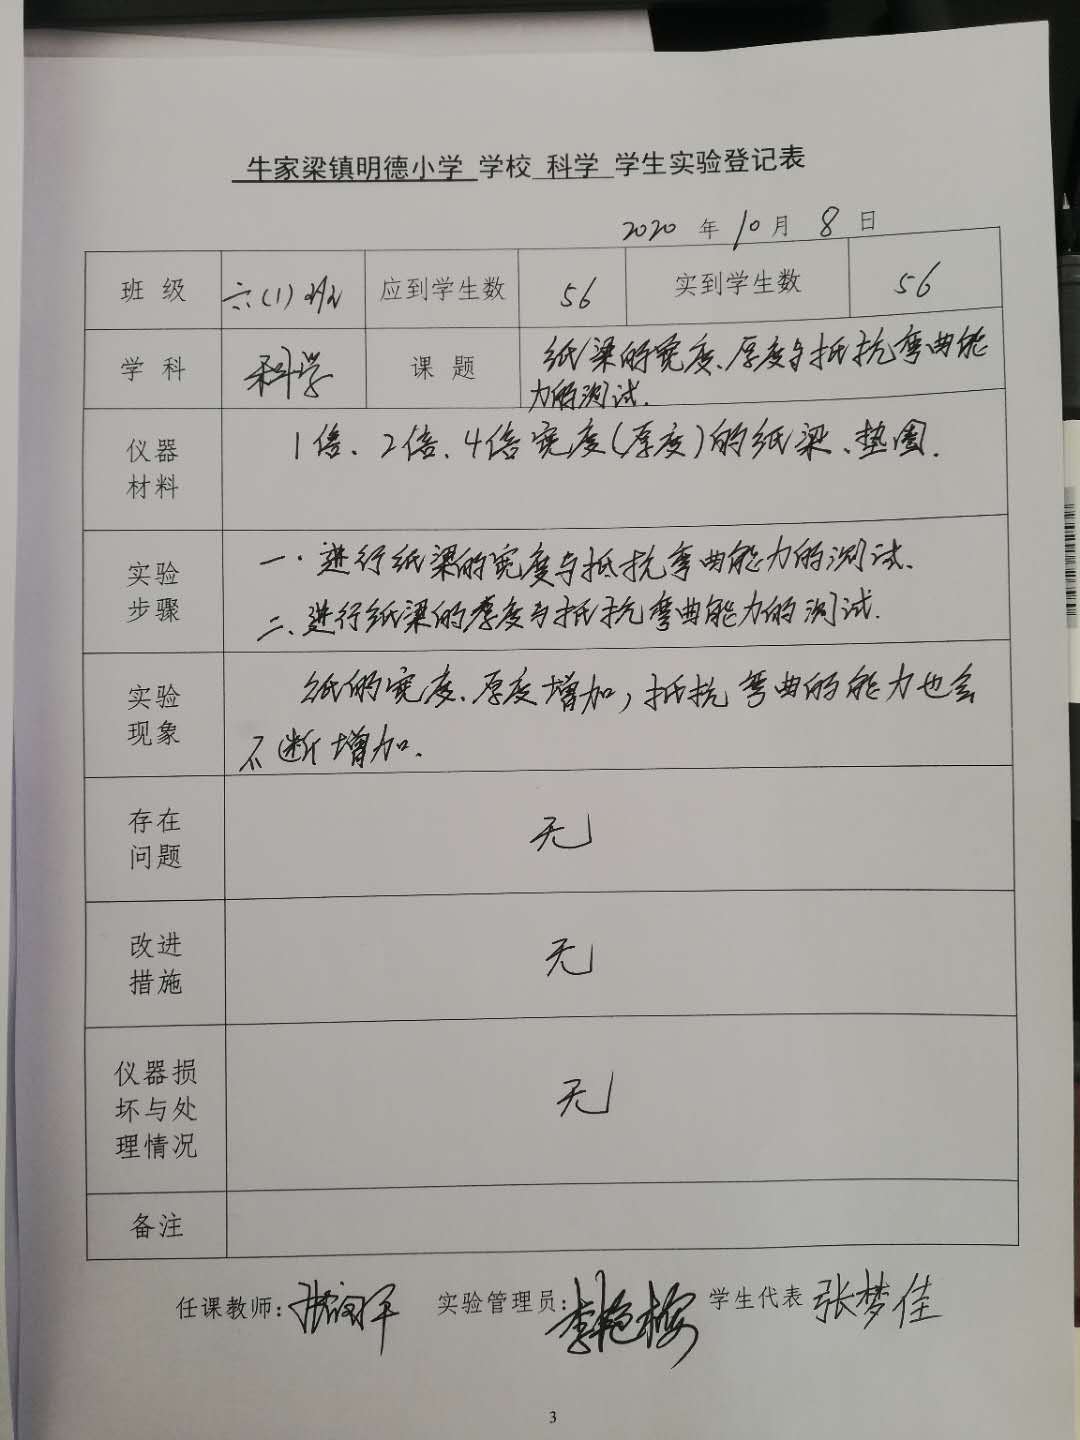 牛家梁镇明德小学 学校 科学 学生实验登记表
2020 年 10 月 8 日
班 级 六(1)班 应到学生数 56 实到学生数 56
学 科 科学 课 题 纸梁的宽度、厚度与抵抗弯曲能
力的测试.
仪器
材料
1倍、2倍、4倍宽度(厚度)的纸梁、垫圈.
实验
步骤
一. 进行纸梁的宽度与抵抗弯曲能力的测试.
二、进行纸梁的厚度与抵抗弯曲能力的测试.
实验
现象
纸的宽度、厚度增加,抵抗弯曲的能力也会
不断增加.
存在
问题
无
改进
措施
无
仪器损
坏与处
理情况
无
备注
任课教师: 实验管理员: 李艳梅 学生代表 张梦佳
3